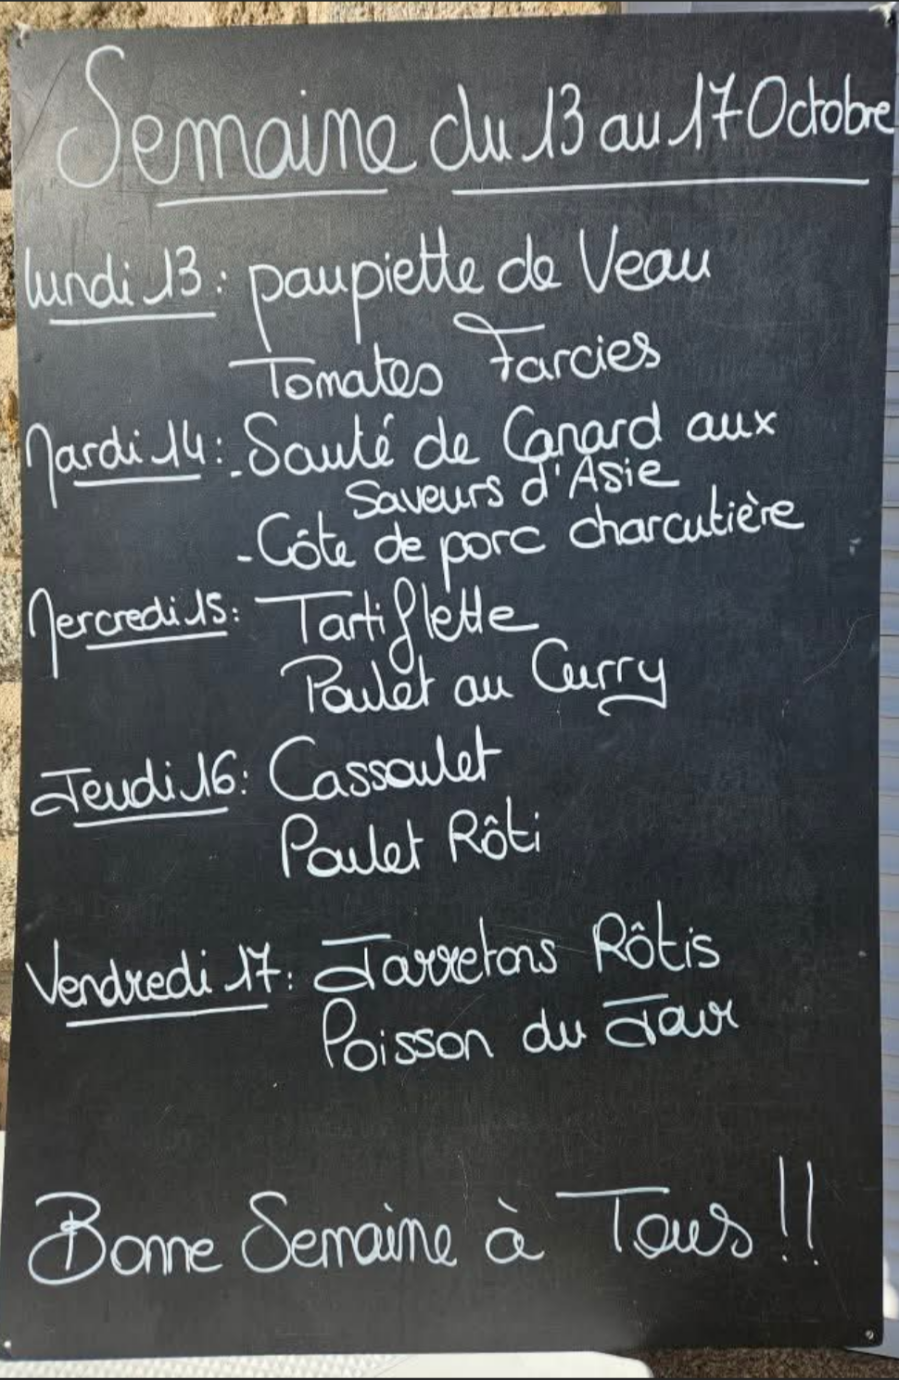 Semaine du 13 au 17 Octobre
lundi 13: paupiette de Veau
Tomates Farcies
Mardi 14: -Sauté de Canard aux
Saveurs d'Asie
-Côte de porc charcutière
Mercredi 15: Tartiflette
Poulet au Curry
Jeudi 16: Cassoulet
Poulet Rôti
Vendredi 17: Jarretons Rôtis
Poisson du Jour
Bonne Semaine à Tous!!